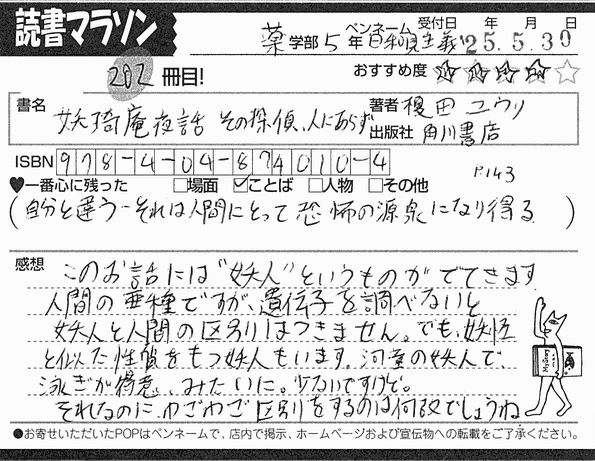 読書マラソン
薬学部5年 ペンネーム 受付日 年 月 日
'25.5.30
202冊目!
おすすめ度
書名 妖琦庵夜話 その探偵、人にあらず
著者 榎田ユウリ
出版社 角川書店
ISBN 978-4-04-874010-4
P.143
♥一番心に残った □場面 ☑ことば □人物 □その他
(自分と違う-それは人間にとって恐怖の源泉になり得る)
感想 このお話には"妖人"というものがでてきます
人間の亜種ですが、遺伝子を調べないと
妖人と人間の区別はつきません。でも、妖怪
と似た性質をもつ妖人もいます。河童の妖人で、
泳ぎが得意、みたいに。少ないですけど。
それなのに、わざわざ区別をするのは何故でしょうね
●お寄せいただいたPOPはペンネームで、店内で掲示、ホームページおよび宣伝物への転載をご了承ください。